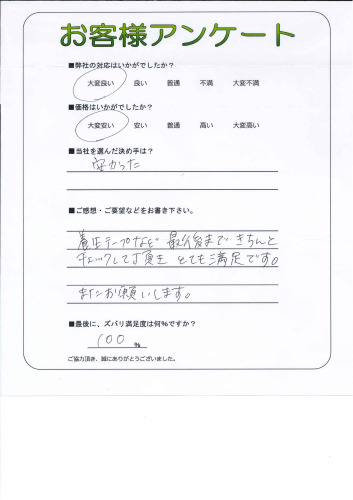 お客様アンケート
■弊社の対応はいかがでしたか？
大変良い 良い 普通 不満 大変不満
■価格はいかがでしたか？
大変安い 安い 普通 高い 大変高い
■当社を選んだ決め手は？
安かった
■ご感想・ご要望などをお書き下さい。
養生テープなど 最後まで きちんと
チェックして頂き とても満足です。
またお願いします。
■最後に、ズバリ満足度は何%ですか？
100 %
ご協力頂き、誠にありがとうございました。